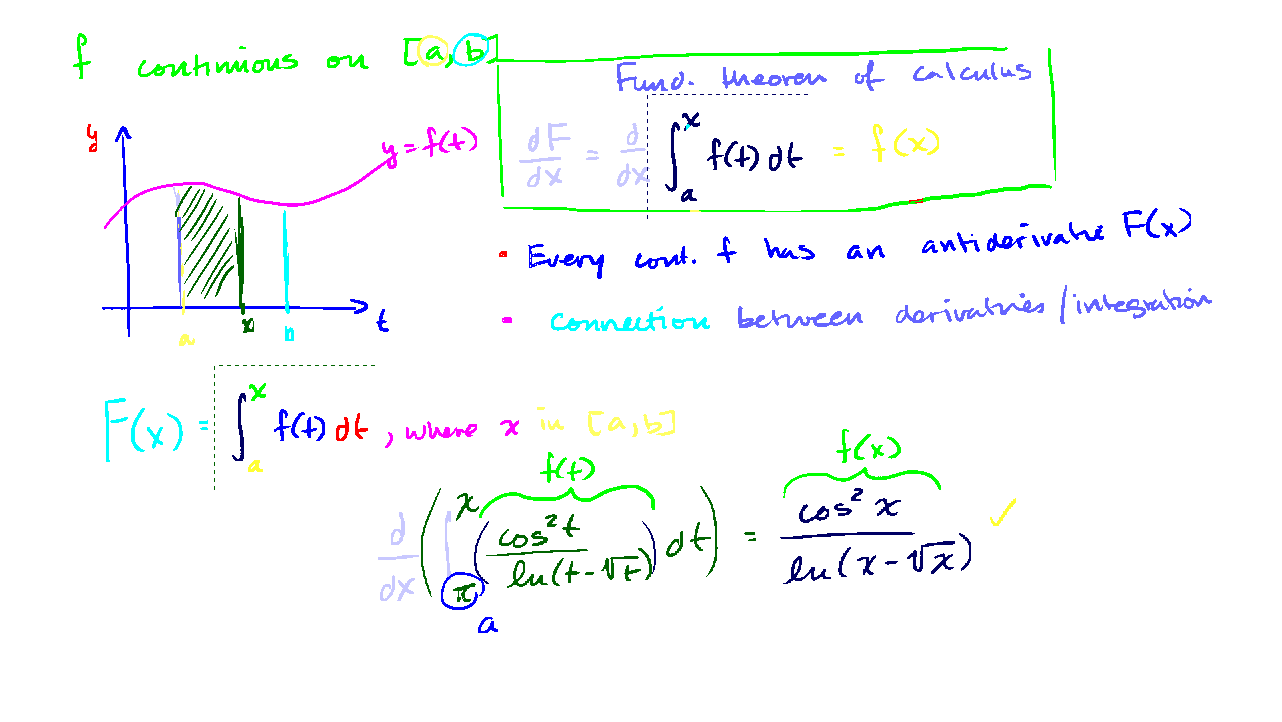 f continuous on [a, b]
Fund. theorem of calculus
dF/dx = d/dx ∫_a^x f(t) dt = f(x)
y
y = f(t)
a x b t
• Every cont. f has an antiderivative F(x)
• Connection between derivatives/integration
F(x) = ∫_a^x f(t) dt, where x in [a, b]
f(t) f(x)
d/dx (∫_π^x (cos² t / ln(t - √t)) dt) = cos² x / ln(x - √x) ✓
a